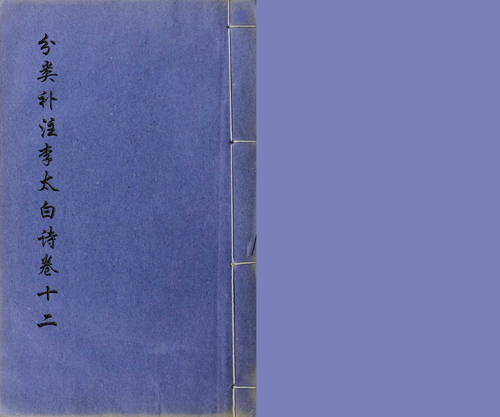 分类补注李太白诗卷十二